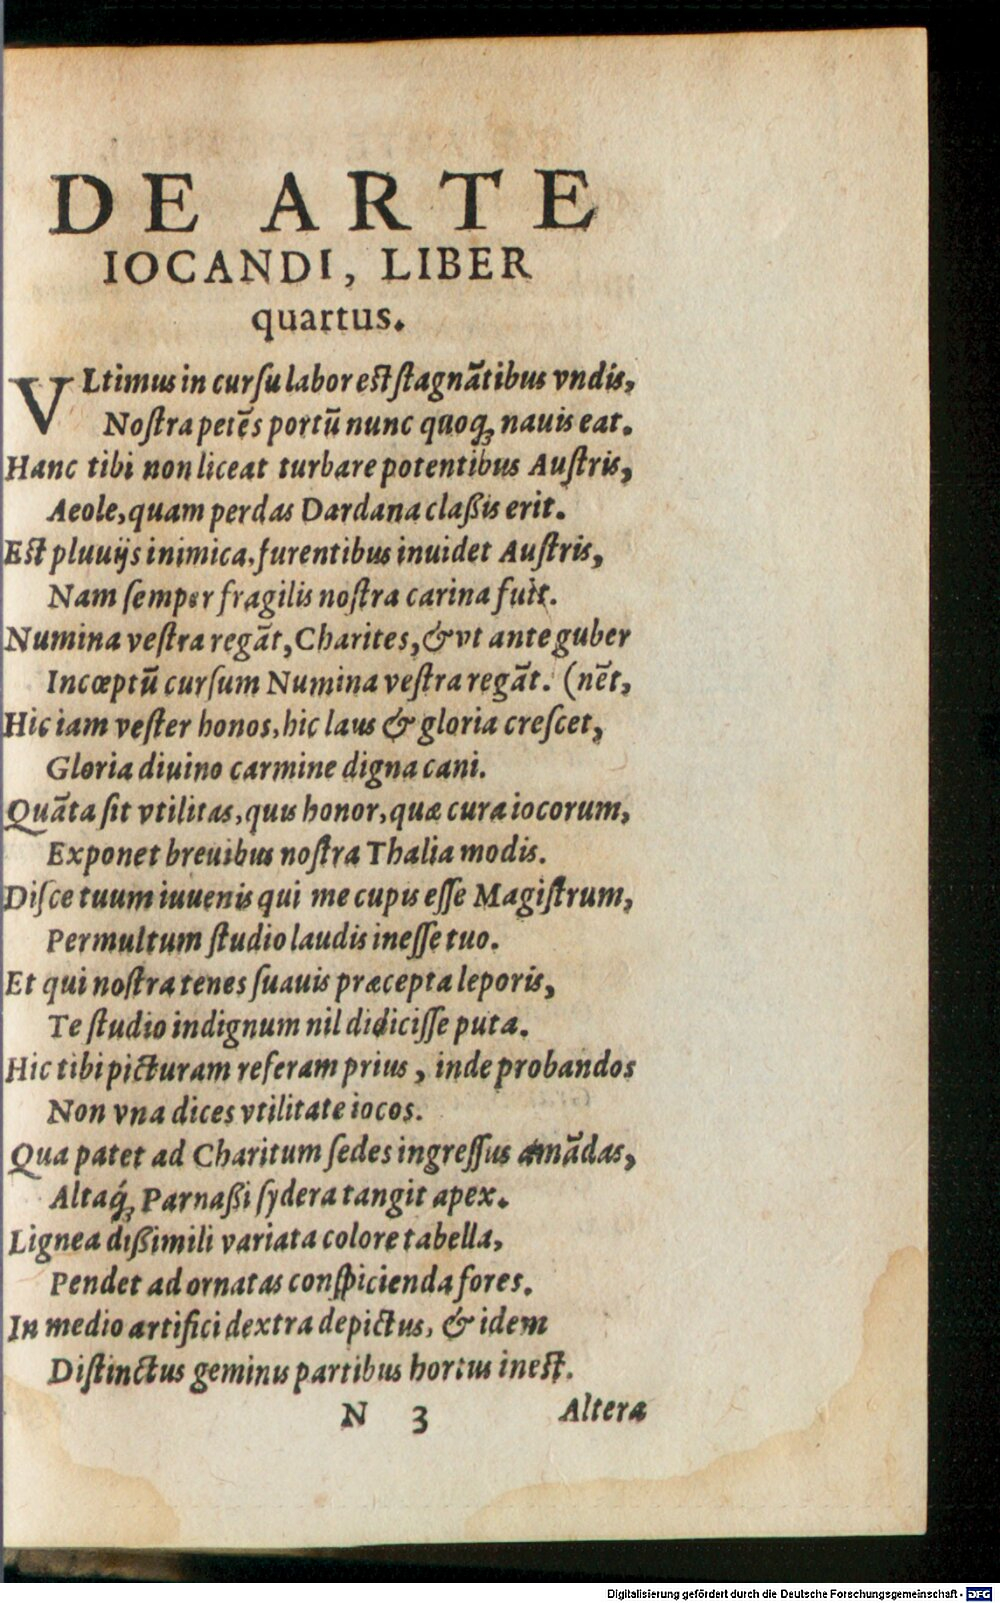 DE ARTE
IOCANDI, LIBER
quartus.
VLtimus in cursu labor est stagnãtibus vndis,
Nostra petẽs portũ nunc quoq; nauis eat.
Hanc tibi non liceat turbare potentibus Austris,
Aeole, quam perdas Dardana claßis erit.
Est pluuijs inimica, furentibus inuidet Austris,
Nam semper fragilis nostra carina fuit.
Numina vestra regãt, Charites, & vt ante guber
Incœptũ cursum Numina vestra regãt. (nẽt,
Hic iam vester honos, hic laus & gloria crescet,
Gloria diuino carmine digna cani.
Quãta sit vtilitas, quis honor, quæ cura iocorum,
Exponet breuibus nostra Thalia modis.
Disce tuum iuuenis qui me cupis esse Magistrum,
Permultum studio laudis inesse tuo.
Et qui nostra tenes suauis præcepta leporis,
Te studio indignum nil didicisse puta.
Hic tibi picturam referam prius, inde probandos
Non vna dices vtilitate iocos.
Qua patet ad Charitum sedes ingressus amãdas,
Altaq́; Parnaßi sydera tangit apex.
Lignea dißimili variata colore tabella,
Pendet ad ornatas conspicienda fores.
In medio artifici dextra depictus, & idem
Distinctus geminis partibus hortus inest.
N 3 Altera
Digitalisierung gefördert durch die Deutsche Forschungsgemeinschaft - DFG